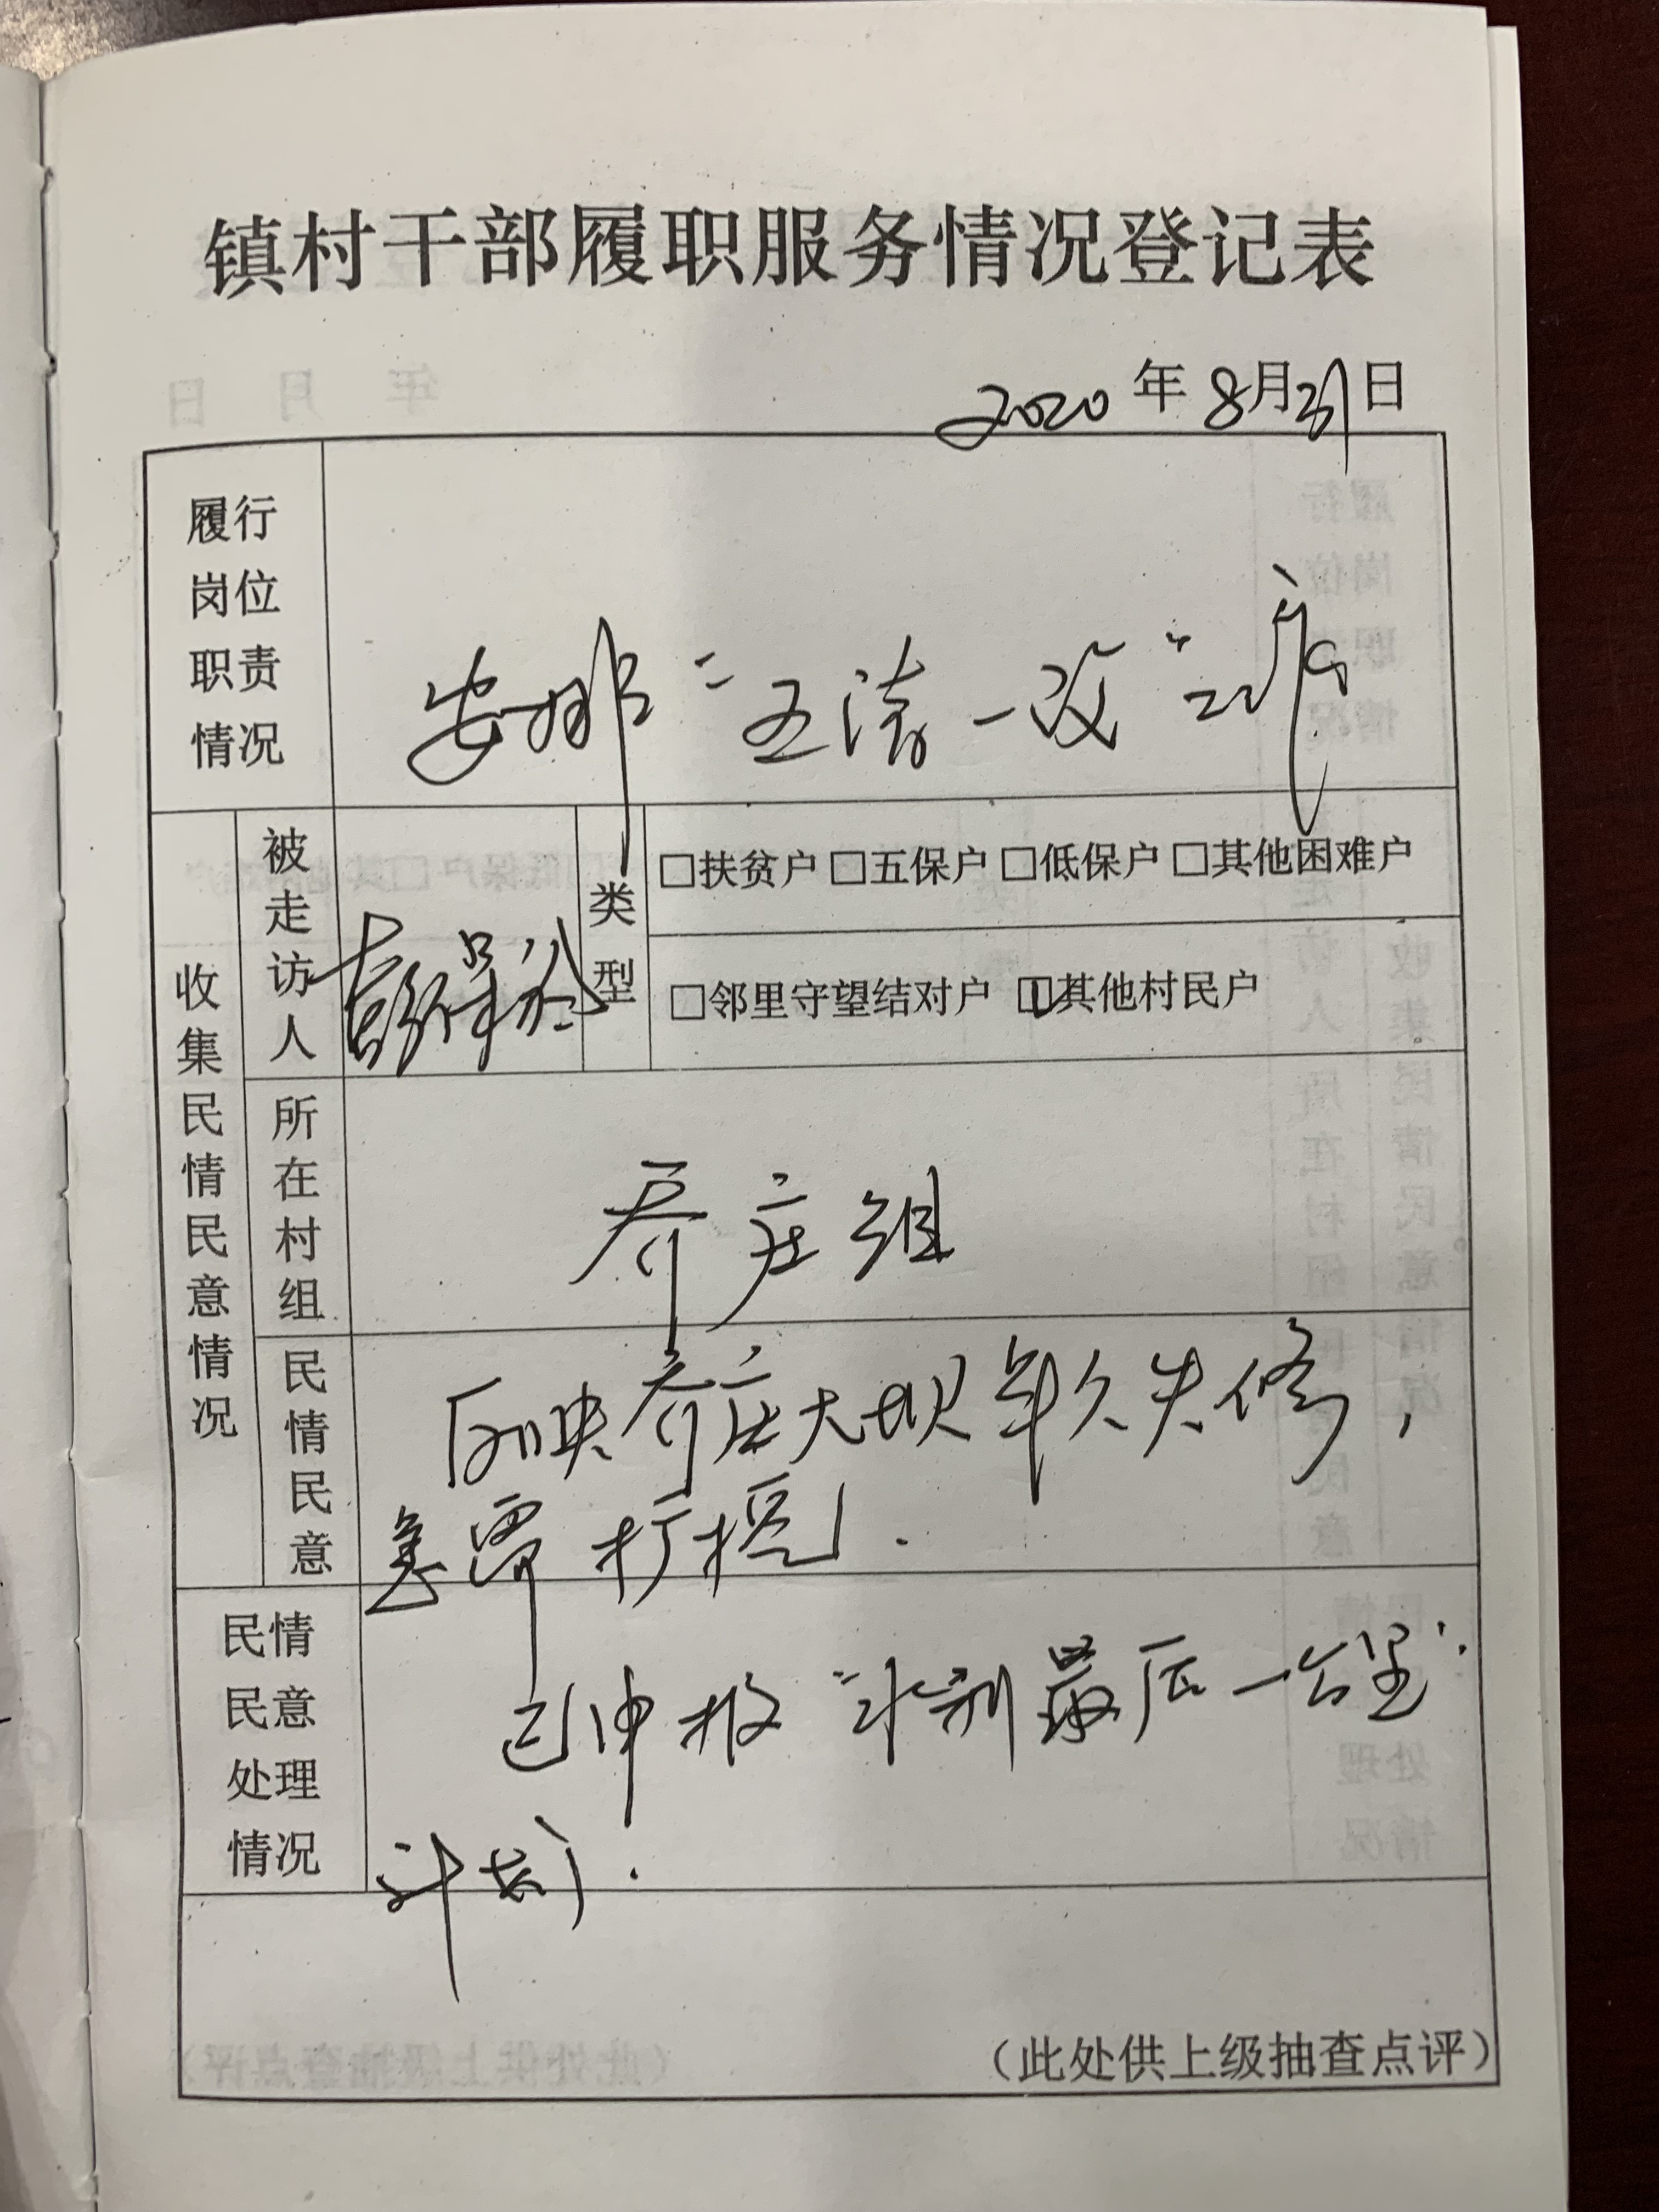 镇村干部履职服务情况登记表
2020年8月31日
履行岗位职责情况
安排“五清一改”工作
收集民情民意情况
被走访人
彭
类型
□扶贫户 □五保户 □低保户 □其他困难户
□邻里守望结对户 ☑其他村民户
所在村组
乔庄组
民情民意
反映乔庄大坝年久失修，
急需扩挖.
民情民意处理情况
已申报“水利最后一公里”
计划.
（此处供上级抽查点评）